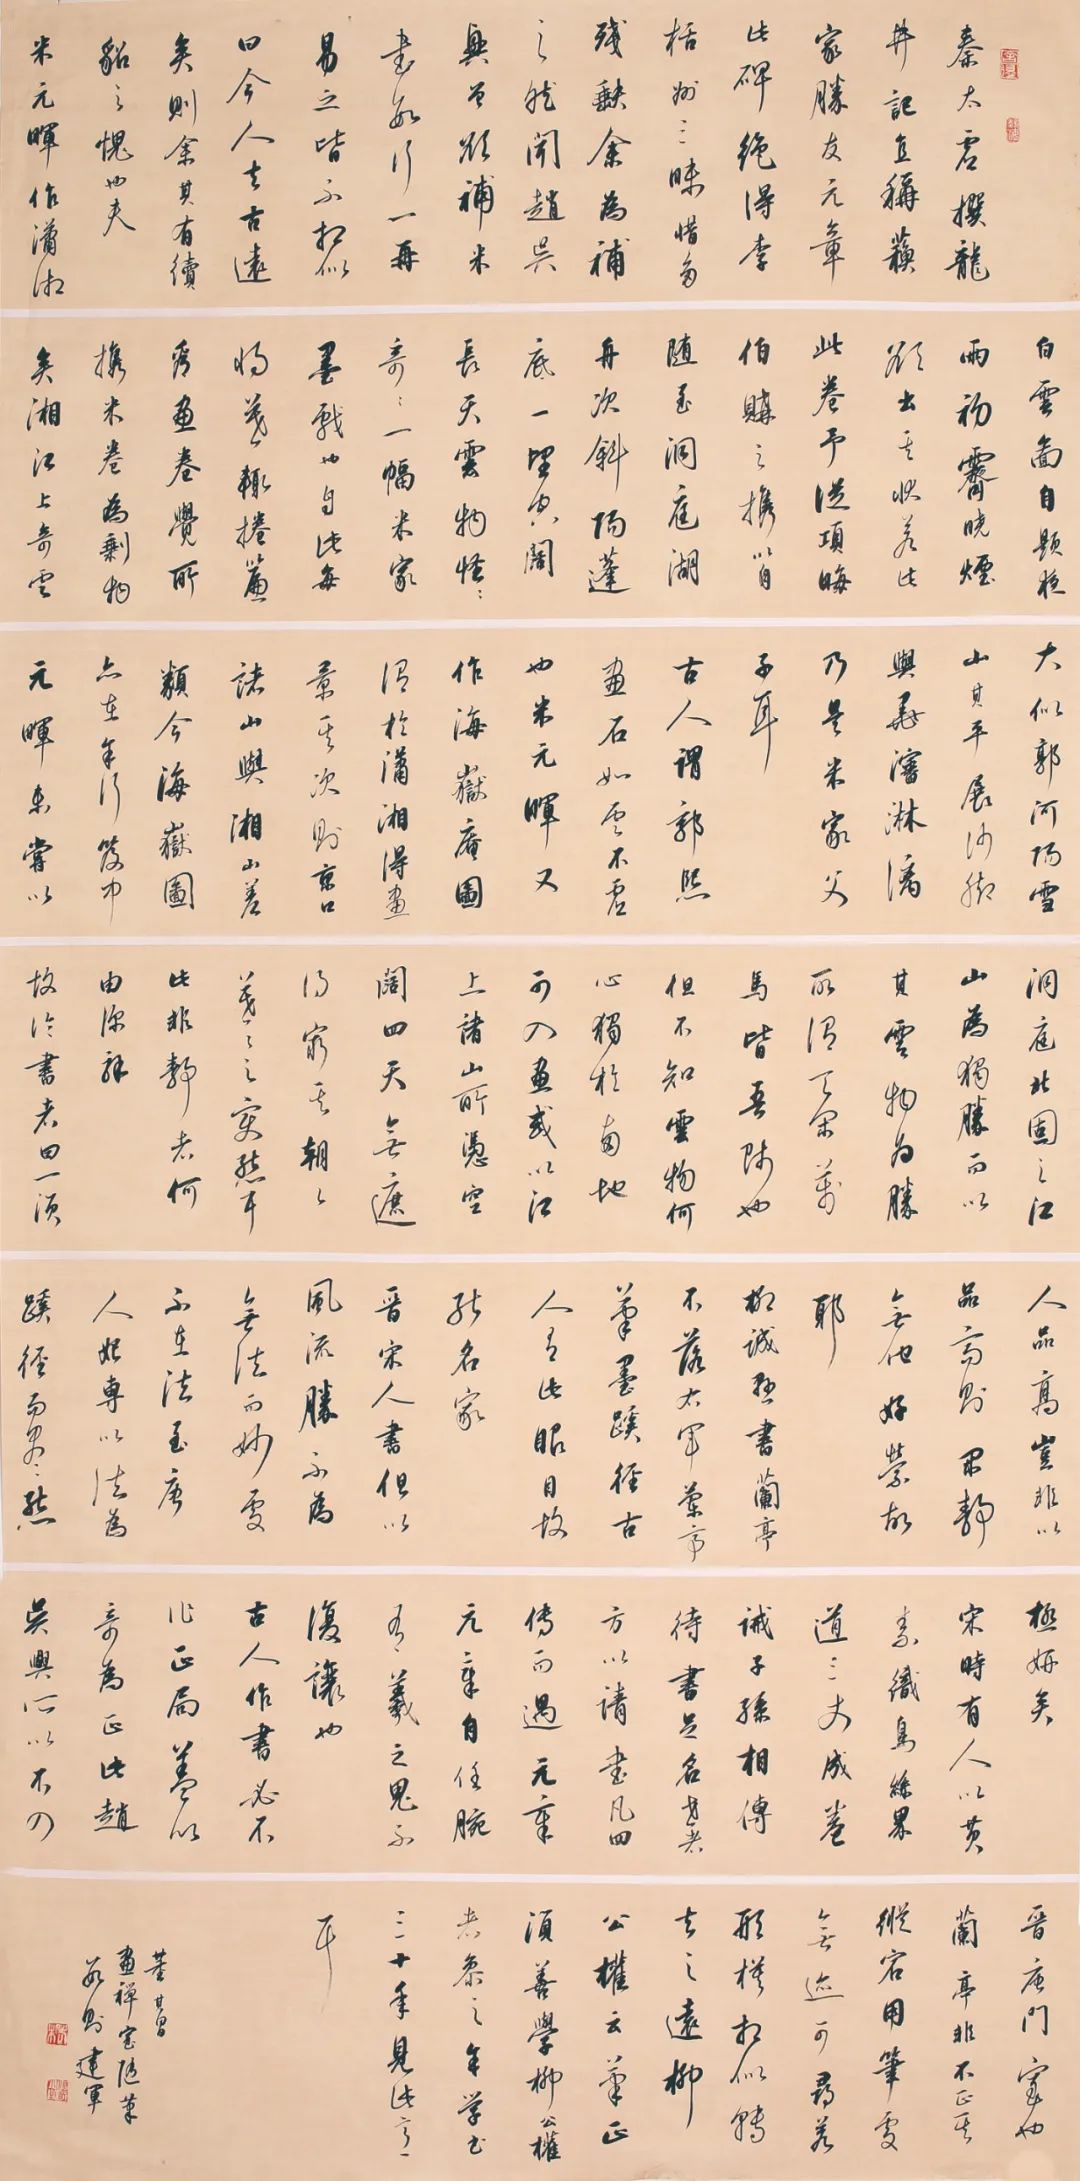 秦太虛撰龍
井記且稱蘇
家勝友元章
此碑絕得李
括州三昧惜多
殘缺余為補
之然聞趙吳
興曾欲補米
書數行一再
易之皆不相似
曰今人去古遠
矣則余其有續
貂之愧也夫
米元暉作瀟湘
白雲圖自題夜
雨初霽曉煙
欲出其狀若此
此卷予從項晦
伯購之攜以自
隨至洞庭湖
舟次斜陽蓬
底一望空闊
長天雲物怪怪
奇奇一幅米家
墨戲也自此每
將暮輒捲簾
看畫卷覺所
攜米卷為剩物
矣湘江上奇雲
大似郭河陽雪
山其平展沙腳
與墨瀋淋漓
乃是米家父
子耳
古人謂郭熙
畫石如雲不虛
也米元暉又
作海嶽庵圖
謂於瀟湘得畫
景其次則京口
諸山與湘山差
類今海嶽圖
亦在余行笈中
元暉未嘗以
洞庭北固之江
山為獨勝而以
其雲物為勝
所謂天閑萬
馬皆吾師也
但不知雲物何
心獨於兩地
可入畫或以江
上諸山所憑空
闊四天無遮
得窮其朝朝
暮暮之變態耳
此非靜者何
由深解
故論書者曰一須
人品高豈非以
品高則閑靜
無他好縈故
耶
柳誠懸書蘭亭
不落右軍蘭亭
筆墨蹊徑古
人有此眼目故
能名家
晉宋人書但以
風流勝不為
無法而妙處
不在法至唐
人始專以法為
蹊徑而盡態
極妍矣
宋時有人以黃
素織烏絲界
道三丈成卷
誡子孫相傳
待書足名世者
方以請書凡四
傳而遇元章
元章自任腕
有羲之鬼不
復讓也
古人作書必不
作正局蓋以
奇為正此趙
吳興所以不入
晉唐門室也
蘭亭非不正其
縱宕用筆處
無跡可尋若
形模相似轉
去之遠柳
公權云筆正
須善學柳公權
者參之余學書
三十年見此意
耳
董其昌
畫禪室隨筆
數則 建軍